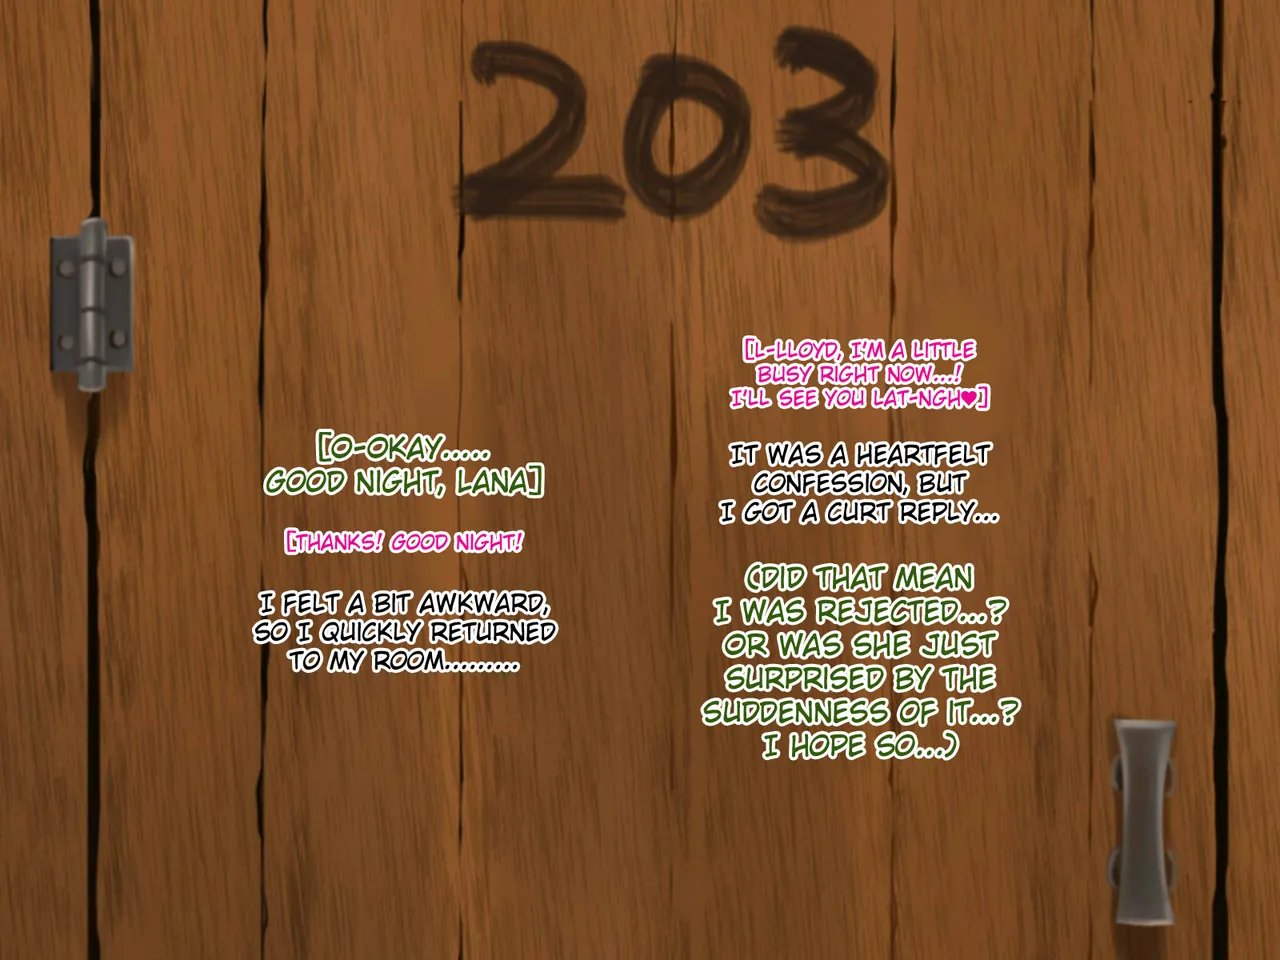 203
[L-LLOYD, I'M A LITTLE
BUSY RIGHT NOW...!
I'LL SEE YOU LAT-NGH♥]
IT WAS A HEARTFELT
CONFESSION, BUT
I GOT A CURT REPLY...
(DID THAT MEAN
I WAS REJECTED...?
OR WAS SHE JUST
SURPRISED BY THE
SUDDENNESS OF IT...?
I HOPE SO...)
[O-OKAY.....
GOOD NIGHT, LANA]
[THANKS! GOOD NIGHT!
I FELT A BIT AWKWARD,
SO I QUICKLY RETURNED
TO MY ROOM.........